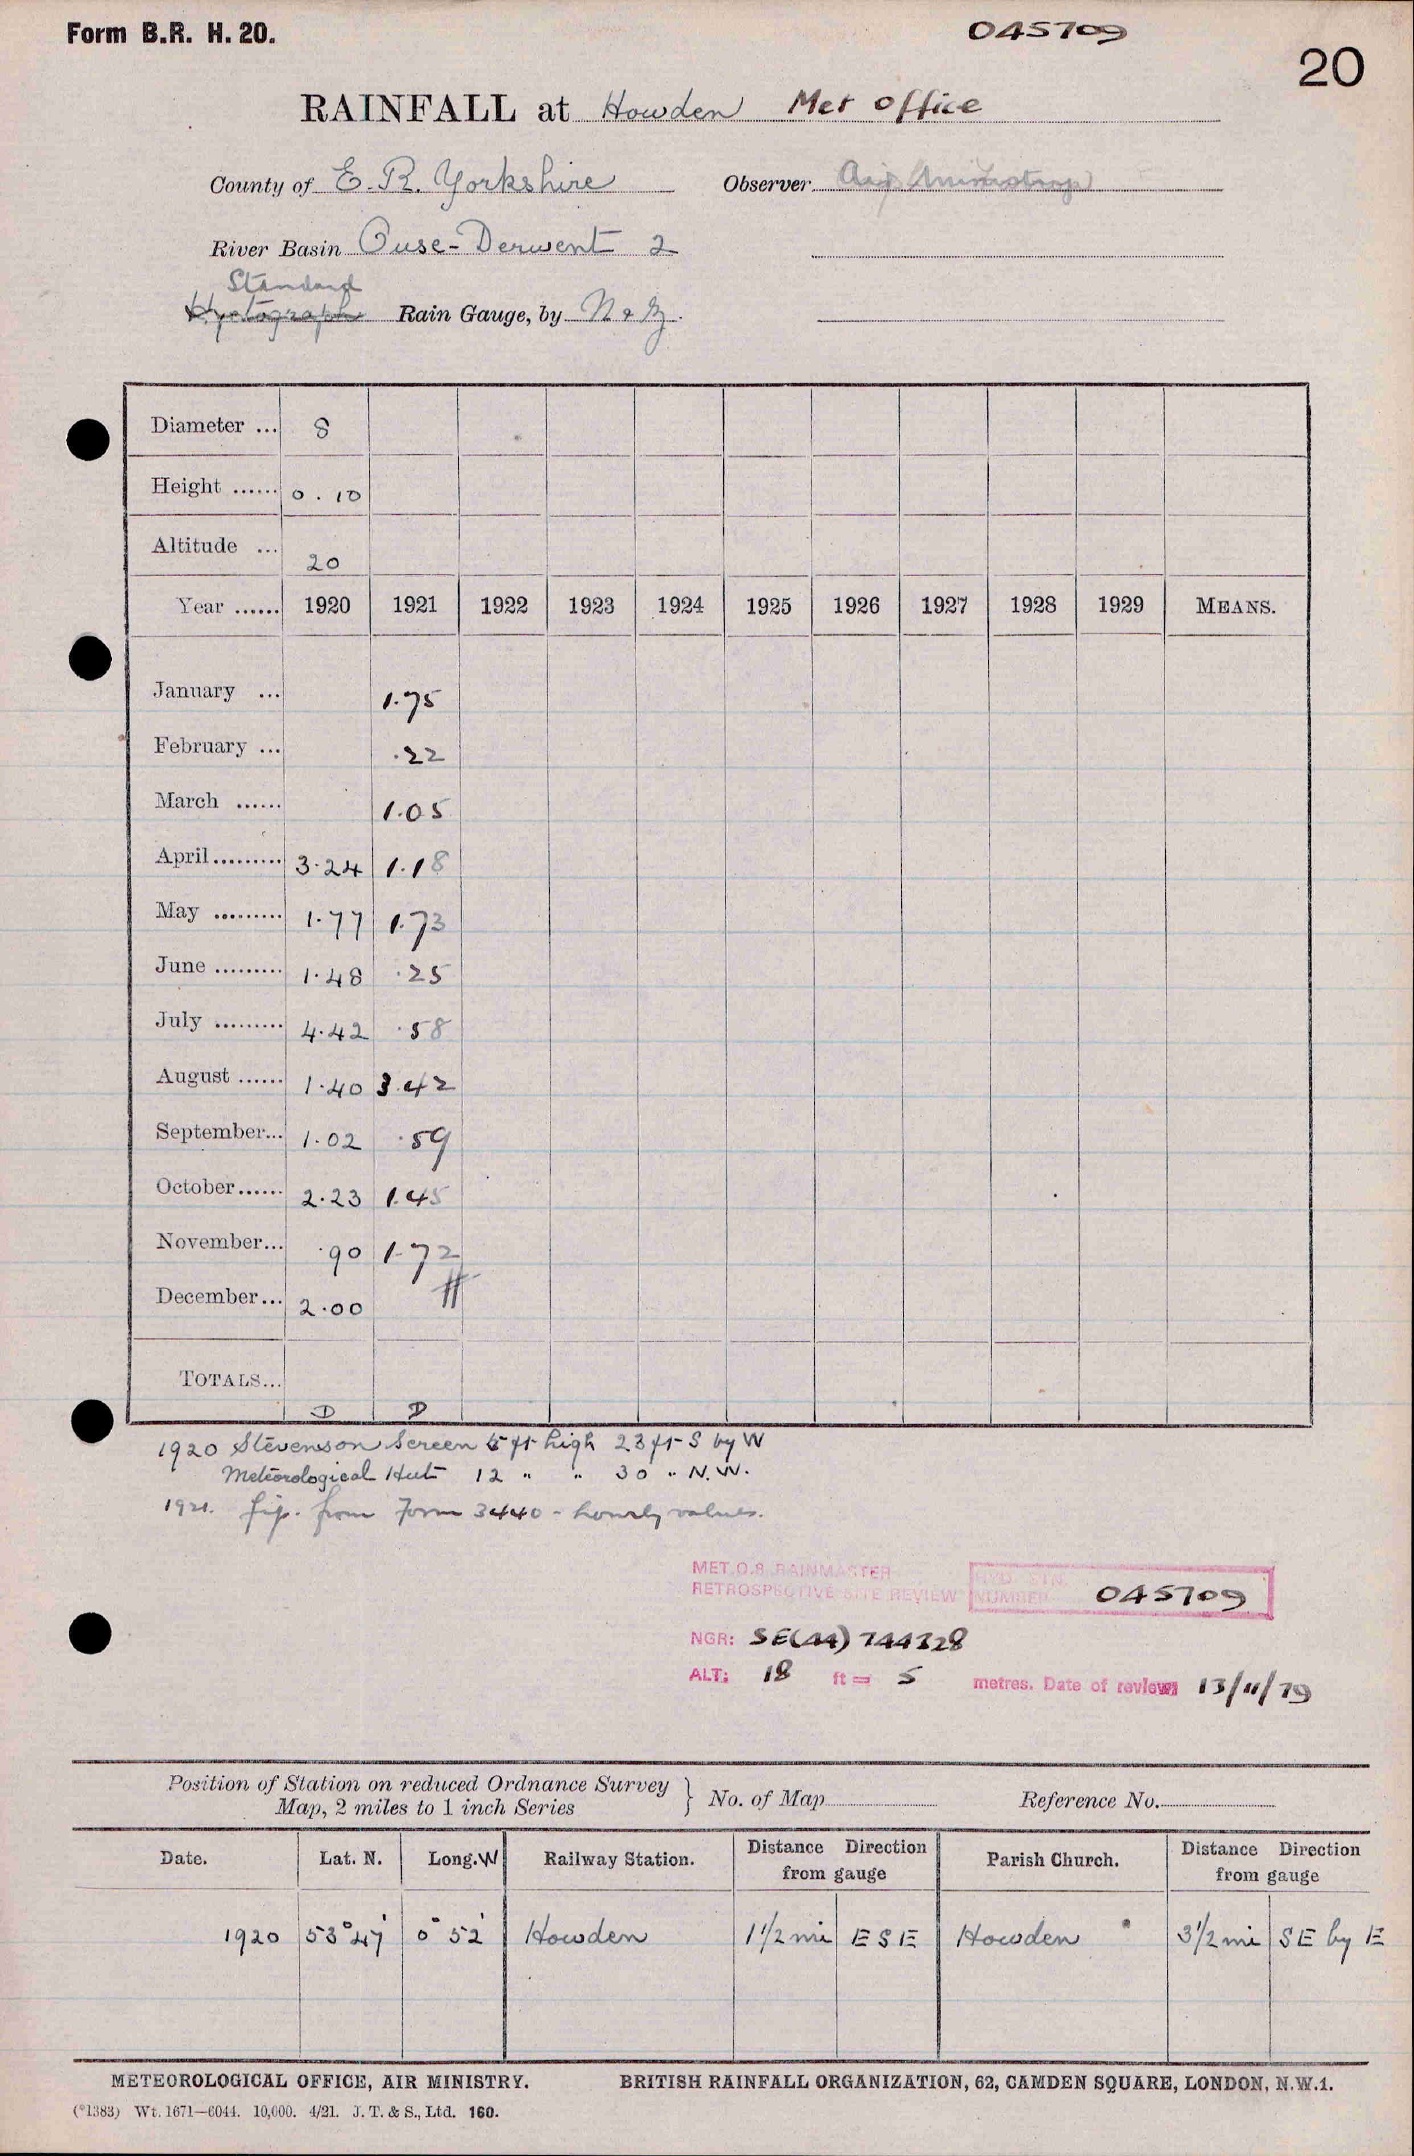 Form B.R. H. 20.
045709
20
RAINFALL at Howden Met Office
County of E.R. Yorkshire Observer Air Ministry
River Basin Ouse-Derwent 2
Standard
Hyetograph Rain Gauge, by N & Z.
Diameter ... 8
Height ...... 0.10
Altitude ... 20
Year ...... 1920 1921 1922 1923 1924 1925 1926 1927 1928 1929 MEANS.
January ... 1.75
February ... .22
March ...... 1.05
April ......... 3.24 1.18
May ......... 1.77 1.73
June ......... 1.48 .25
July ......... 4.42 .58
August ...... 1.40 3.42
September... 1.02 .59
October...... 2.23 1.45
November... .90 1.72
December... 2.00
TOTALS...
D D
1920 Stevenson Screen 5 ft high 23 ft S by W
Meteorological Hut 12 " " 30 " N.W.
1921. fig. from Form 3440 - hourly values.
MET.O.8 RAINMASTER
RETROSPECTIVE SITE REVIEW
HYD STN.
NUMBER 045709
NGR: SE(44) 744328
ALT: 18 ft = 5 metres. Date of review: 13/11/79
Position of Station on reduced Ordnance Survey
Map, 2 miles to 1 inch Series } No. of Map Reference No.
Date. Lat. N. Long. W Railway Station. Distance Direction from gauge Parish Church. Distance Direction from gauge
1920 53° 47' 0° 52' Howden 1 1/2 mi E S E Howden 3 1/2 mi S E by E
METEOROLOGICAL OFFICE, AIR MINISTRY. BRITISH RAINFALL ORGANIZATION, 62, CAMDEN SQUARE, LONDON, N.W.1.
(*1383) Wt. 1671—6044. 10,000. 4/21. J. T. & S., Ltd. 160.